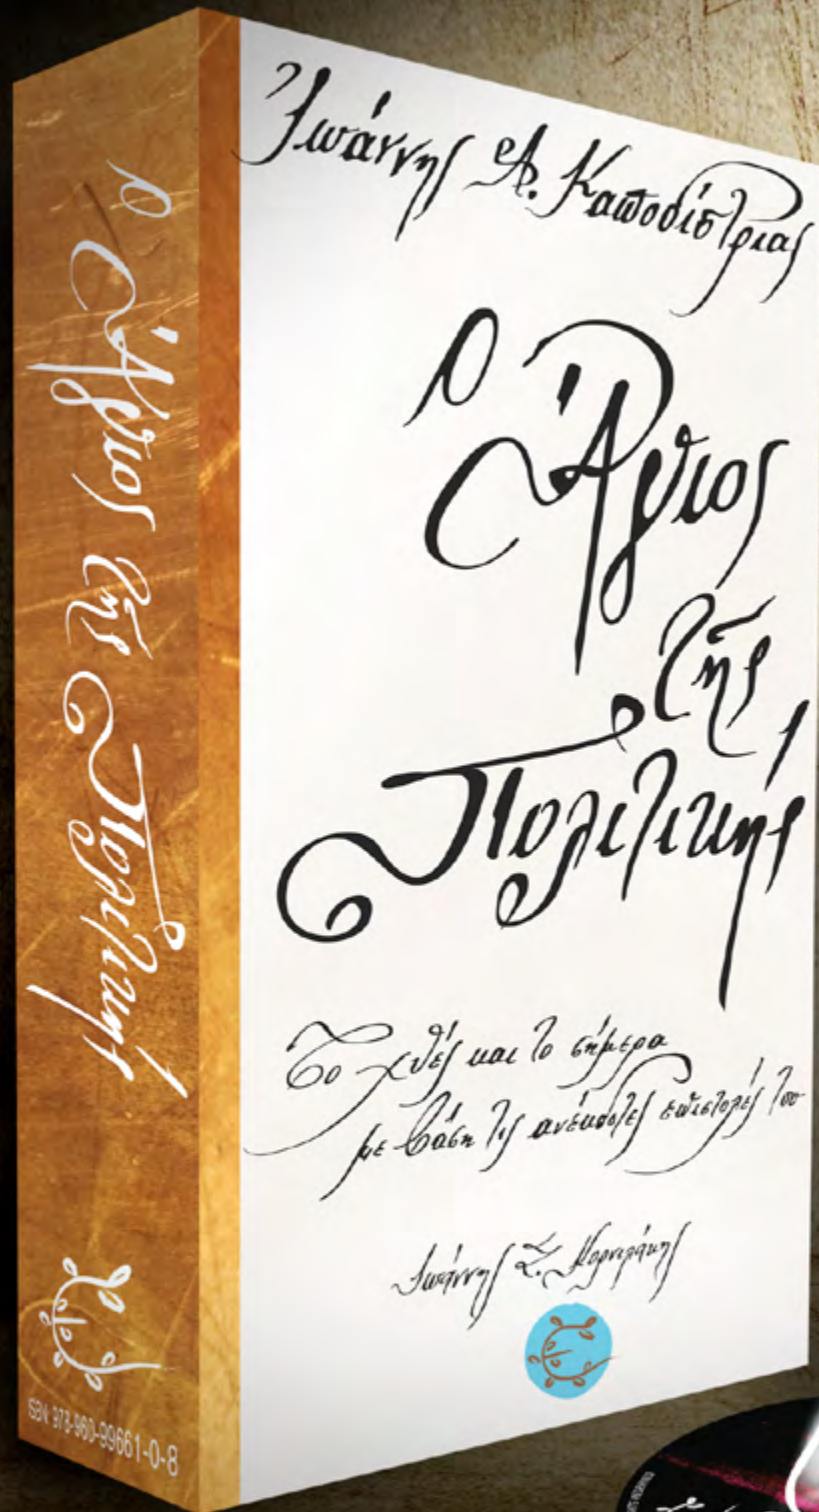 ο Άγιος τῆς Πολιτικής
ISBN 978-960-99661-0-8
Ἰωάννης Α. Καποδίστριας
ο Άγιος
τῆς
Πολιτικής
Το χθές και το σήμερα
με βάση τις ανέκδοτες επιστολές του
Ιωάννης Σ. Κορνιλάκης